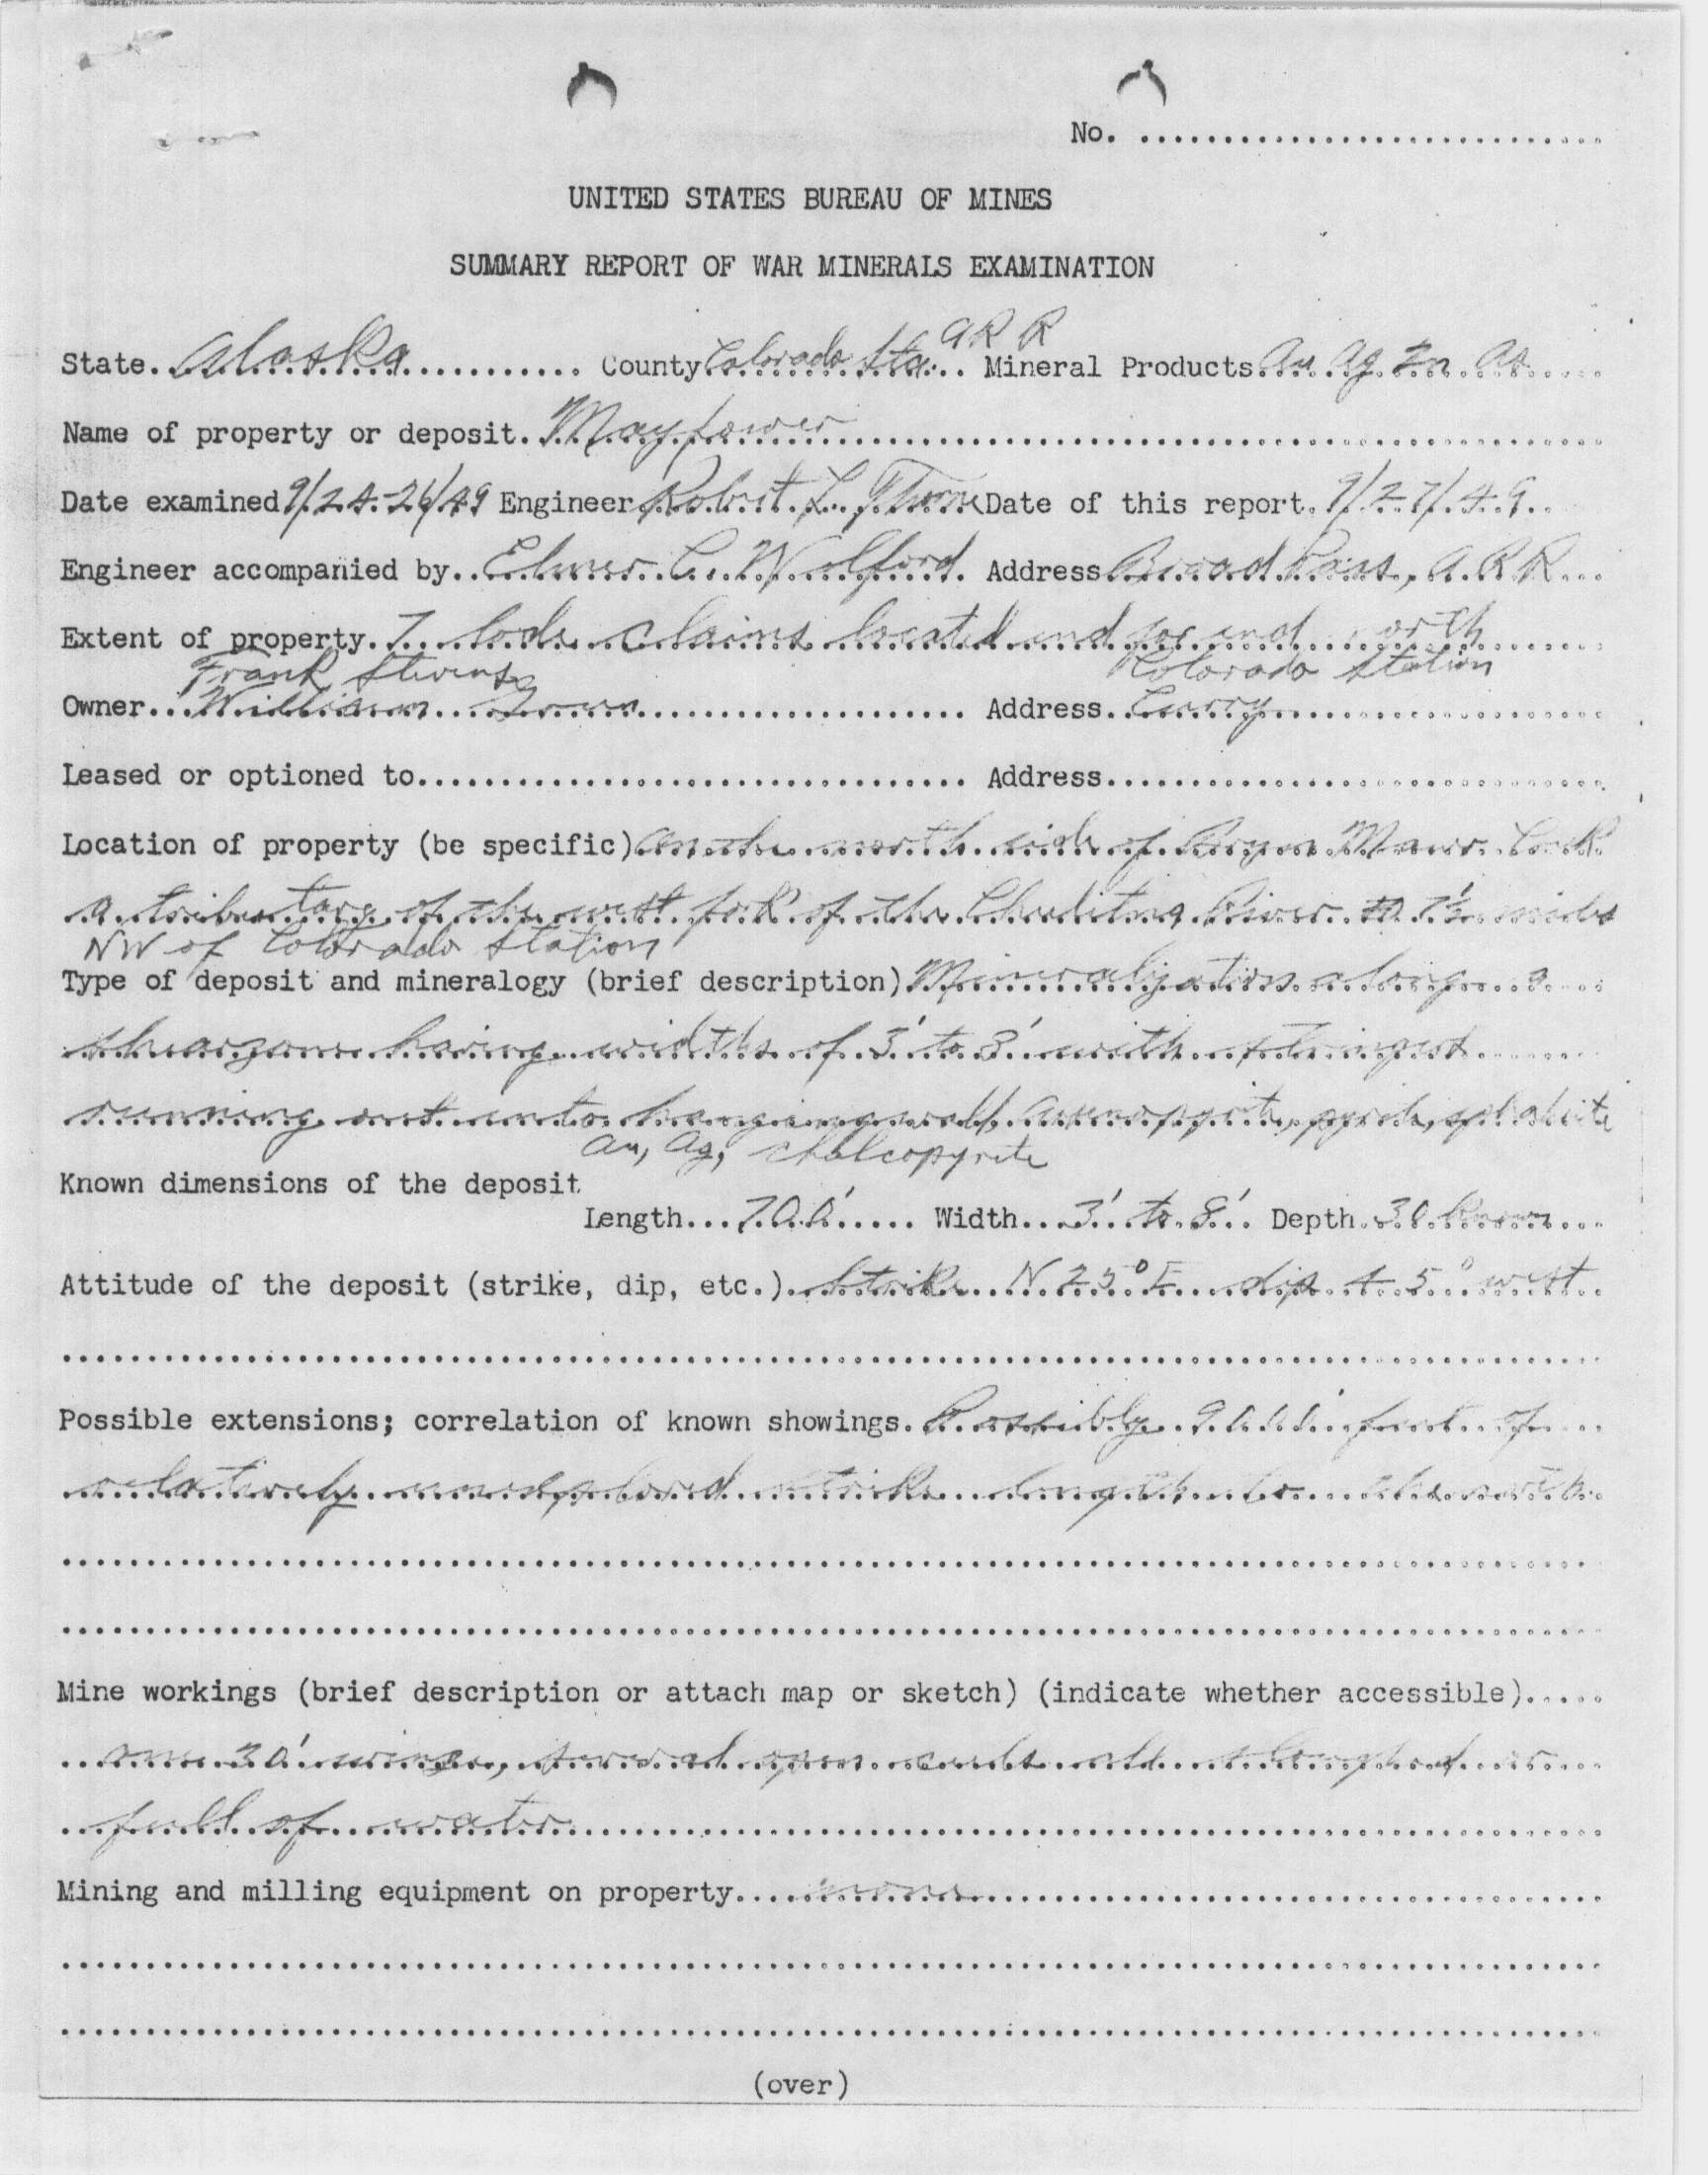 No. ............................
UNITED STATES BUREAU OF MINES
SUMMARY REPORT OF WAR MINERALS EXAMINATION
A R R
State. Alaska ........... County Colorado Sta... Mineral Products. Au Ag Zn As .....
Name of property or deposit. Mayflower ...............................
Date examined 9/24-26/49 Engineer Robert L. Thorne Date of this report. 9/27/49..
Engineer accompanied by.. Elmer C. Wolford. Address Broad Pass, A.R.R...
Extent of property. 7 lode claims located end for end orth.......
Frank Stevens Colorado Station
Owner... William .................... Address.. Curry ....................
Leased or optioned to................................. Address..............................
Location of property (be specific) on the north side of Bryn Mawr Creek
a tributary of the west fork of the Chulitna River 7½ miles
NW of Colorado Station
Type of deposit and mineralogy (brief description) Mineralization along a ....
shearzone having widths of 3' to 8' with stringers ........
running out into hanging wall, arsenopyrite, pyrite, sphalerite
Au, Ag, chalcopyrite
Known dimensions of the deposit
Length... 700' ..... Width... 3' to 8'. Depth. 30 known ....
Attitude of the deposit (strike, dip, etc.). Strike N 25° E dip 45° west..
Possible extensions; correlation of known showings. Possibly feet of ....
relatively unexplored strike length to the north..
Mine workings (brief description or attach map or sketch) (indicate whether accessible).....
.. one 30' winze, several open cuts all sloughed or ....
.. full of water ..............................
Mining and milling equipment on property..... none ..............................
(over)